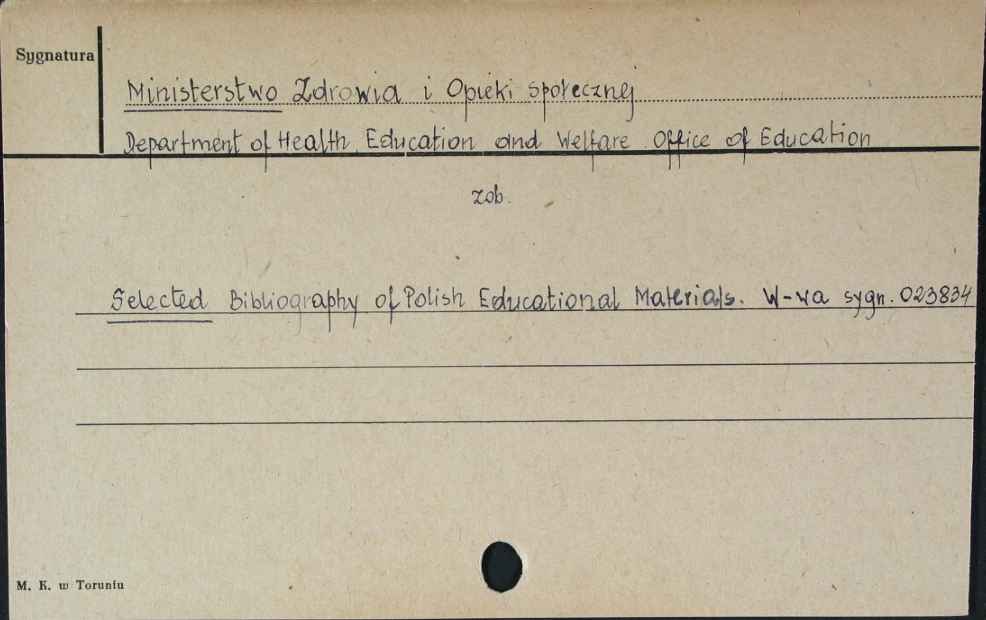 Sygnatura
Ministerstwo Zdrowia i Opieki Społecznej
Department of Health, Education and Welfare Office of Education
zob.
Selected Bibliography of Polish Educational Materials. W-wa sygn. 023834
M. K. w Toruniu